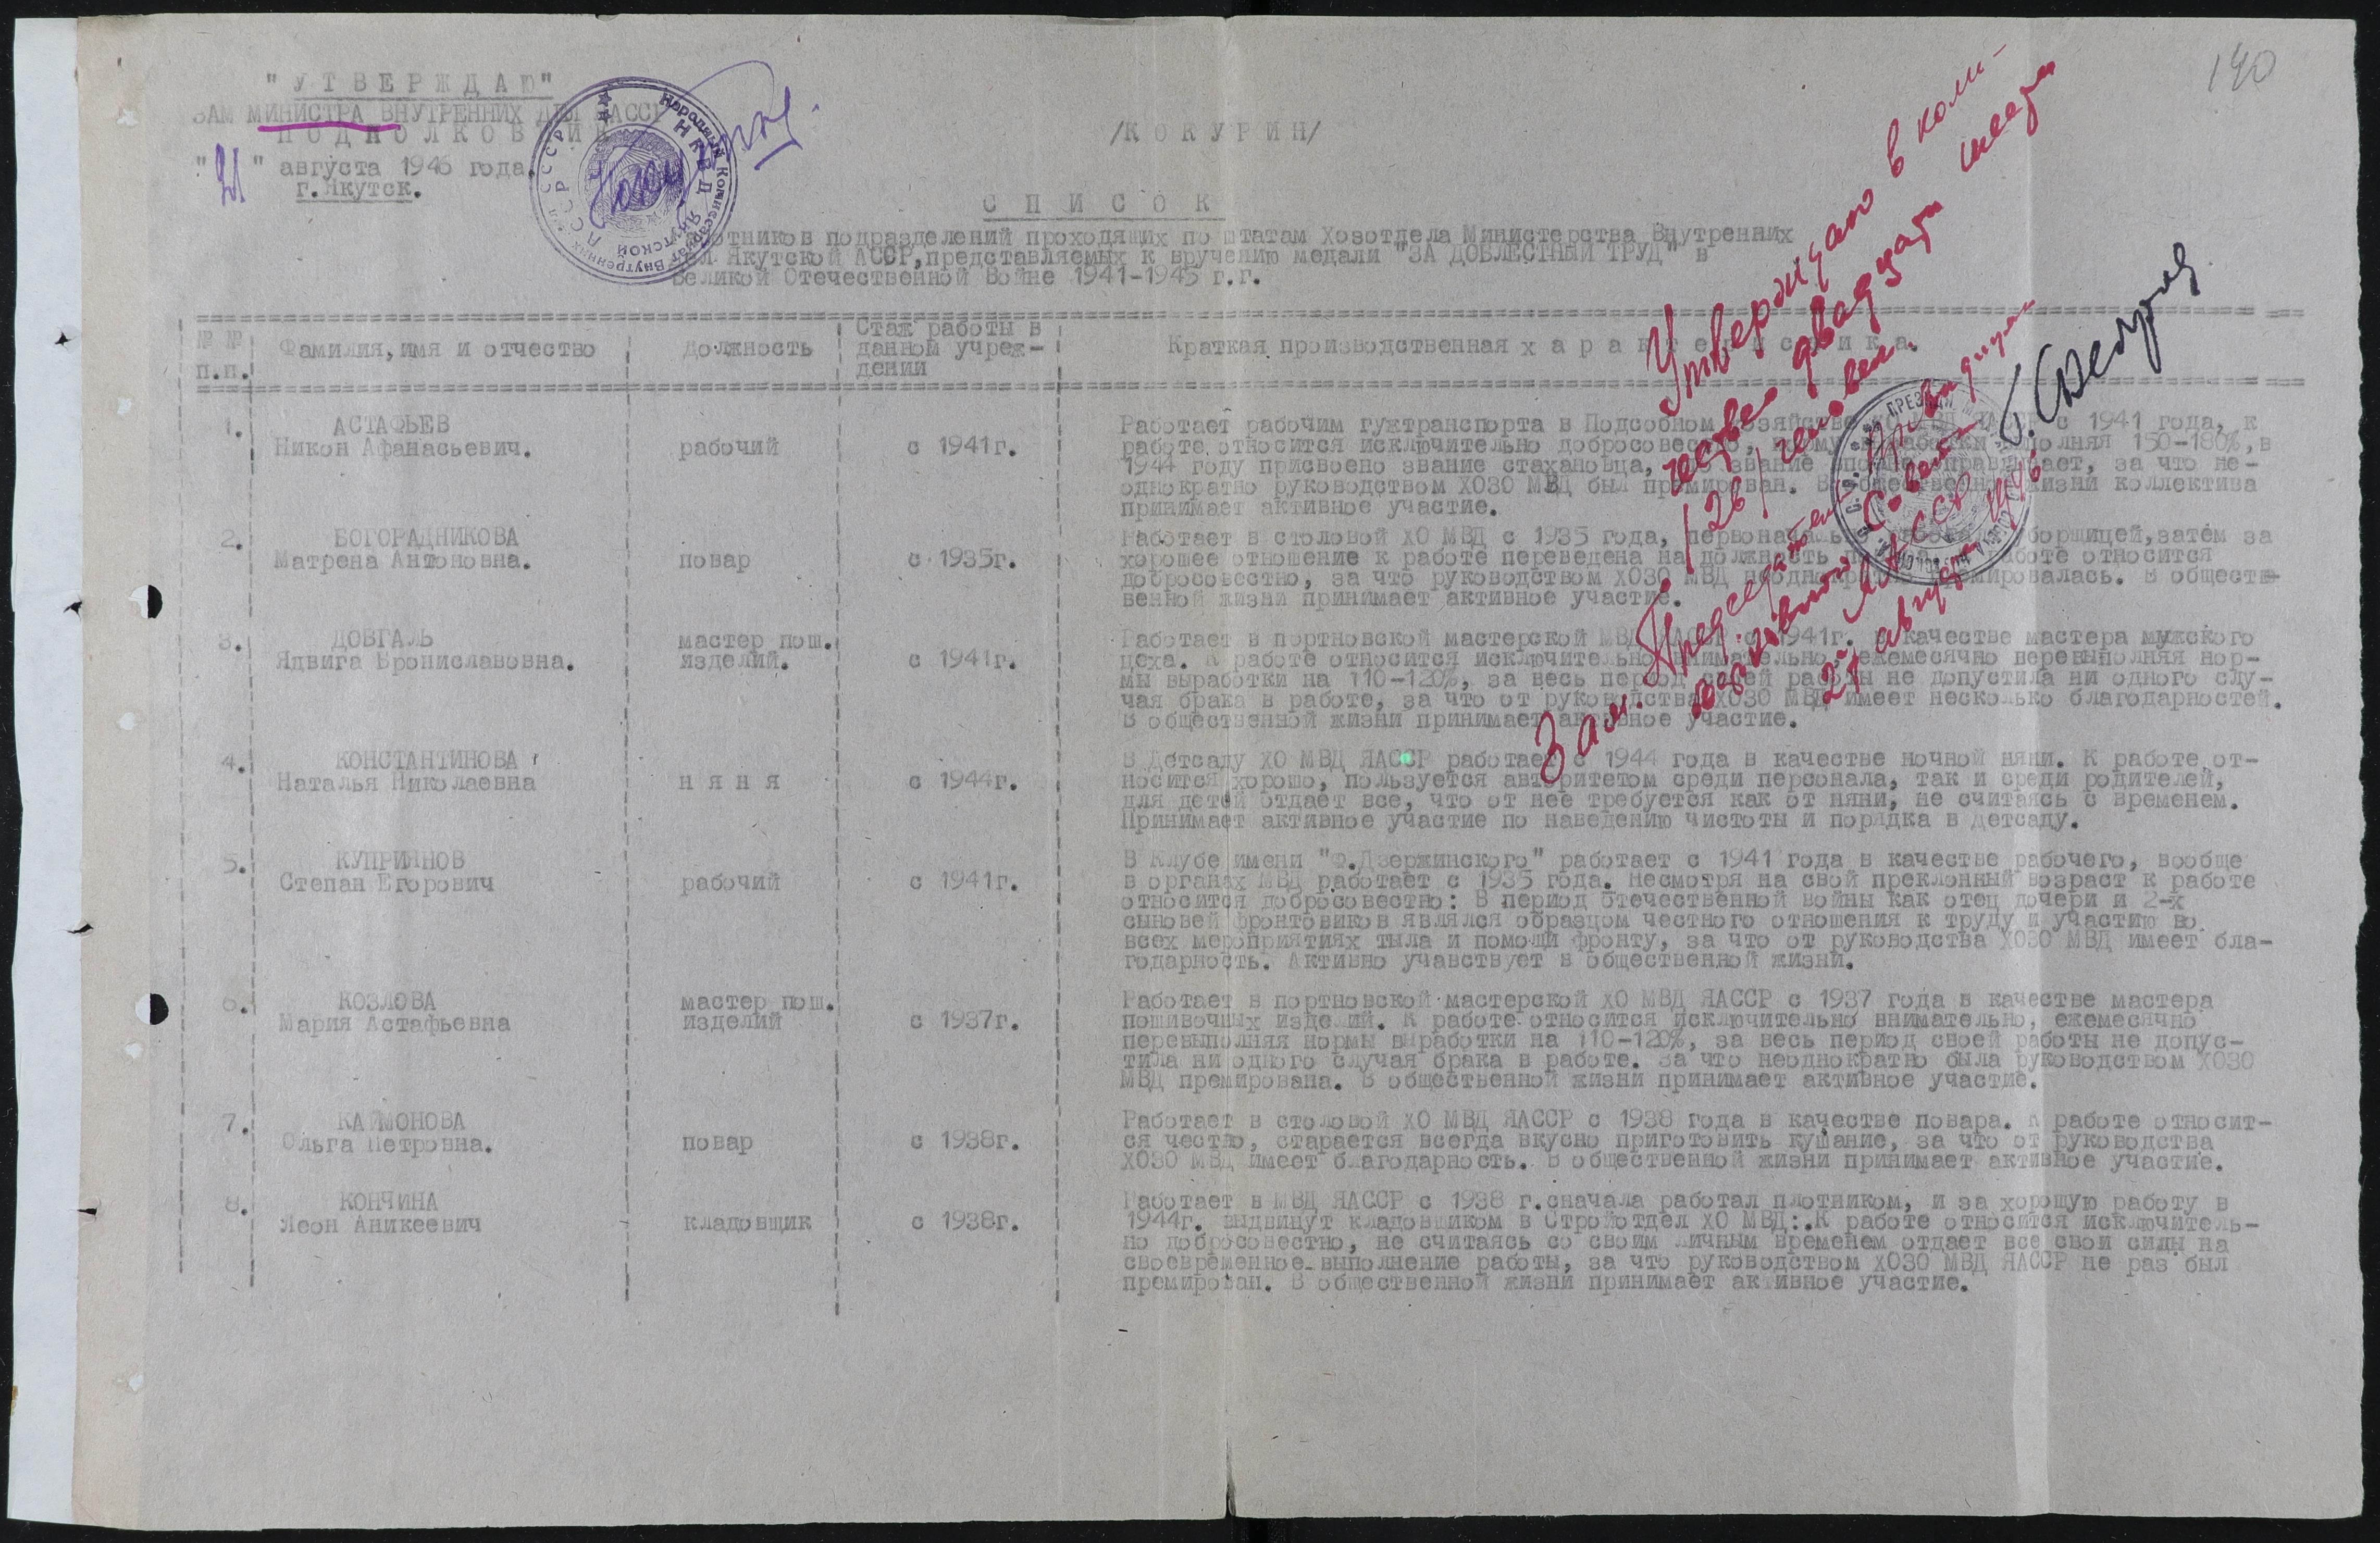 190
"УТВЕРЖДАЮ"
ЗАМ МИНИСТРА ВНУТРЕННИХ ДЕЛ ЯАССР
ПОДПОЛКОВНИК /КОКУРИН/
"21" августа 1946 года.
г.Якутск.
СПИСОК
работников подразделений проходящих по штатам Хозотдела Министерства Внутренних
Дел Якутской АССР,представляемых к вручению медали "ЗА ДОБЛЕСТНЫЙ ТРУД" в
Великой Отечественной Войне 1941-1945 г.г.
Утверждаю в коли-
честве двадцати шести
/26/ человек.
Зам. Председателя Президиума
Верховного Совета
ЯАССР
27 августа 1946
№ № п.п.
Фамилия,имя и отчество
Должность
Стаж работы в
данном учреж-
дении
Краткая производственная характеристика.
1. АСТАФЬЕВ
Никон Афанасьевич.
рабочий
с 1941г.
Работает рабочим гужтранспорта в Подсобном хозяйстве ХО МВД ЯАССР с 1941 года, к
работе относится исключительно добросовестно, норму выработки выполнял 150-180%,в
1944 году присвоено звание стахановца, это звание вполне оправдывает, за что не-
однократно руководством ХОЗО МВД был премирован. В общественной жизни коллектива
принимает активное участие.
2. БОГОРАДНИКОВА
Матрена Антоновна.
повар
с 1935г.
Работает в столовой ХО МВД с 1935 года, первоначально работала уборщицей,затем за
хорошее отношение к работе переведена на должность повара. К работе относится
добросовестно, за что руководством ХОЗО МВД неоднократно премировалась. В общест-
венной жизни принимает активное участие.
3. ДОВГАЛЬ
Ядвига Брониславовна.
мастер пош.
изделий.
с 1941г.
Работает в портновской мастерской МВД ЯАССР с 1941г. в качестве мастера мужского
цеха. К работе относится исключительно внимательно, ежемесячно перевыполняя нор-
мы выработки на 110-120%, за весь период своей работы не допустила ни одного слу-
чая брака в работе, за что от руководства ХОЗО МВД имеет несколько благодарностей.
В общественной жизни принимает активное участие.
4. КОНСТАНТИНОВА
Наталья Николаевна
няня
с 1944г.
В Детсаду ХО МВД ЯАССР работает с 1944 года в качестве ночной няни. К работе от-
носится хорошо, пользуется авторитетом среди персонала, так и среди родителей,
для детей отдает все, что от нее требуется как от няни, не считаясь с временем.
Принимает активное участие по наведению чистоты и порядка в детсаду.
5. КУПРИЯНОВ
Степан Егорович
рабочий
с 1941г.
В Клубе имени "Ф.Дзержинского" работает с 1941 года в качестве рабочего, вообще
в органах МВД работает с 1935 года. Несмотря на свой преклонный возраст к работе
относится добросовестно: В период отечественной войны как отец дочери и 2-х
сыновей фронтовиков являлся образцом честного отношения к труду и участию во
всех мероприятиях тыла и помощи фронту, за что от руководства ХОЗО МВД имеет бла-
годарность. Активно учавствует в общественной жизни.
6. КОЗЛОВА
Мария Астафьевна
мастер пош.
изделий
с 1937г.
Работает в портновской мастерской ХО МВД ЯАССР с 1937 года в качестве мастера
пошивочных изделий. К работе относится исключительно внимательно, ежемесячно
перевыполняя нормы выработки на 110-120%, за весь период своей работы не допус-
тила ни одного случая брака в работе. За что неоднократно была руководством ХОЗО
МВД премирована. В общественной жизни принимает активное участие.
7. КАЙМОНОВА
Ольга Петровна.
повар
с 1938г.
Работает в столовой ХО МВД ЯАССР с 1938 года в качестве повара. К работе относит-
ся честно, старается всегда вкусно приготовить кушание, за что от руководства
ХОЗО МВД имеет благодарность. В общественной жизни принимает активное участие.
8. КОНЧИНА
Леон Аникеевич
кладовщик
с 1938г.
Работает в МВД ЯАССР с 1938 г.сначала работал плотником, и за хорошую работу в
1944г. выдвинут кладовщиком в Стройотдел ХО МВД:.К работе относится исключитель-
но добросовестно, не считаясь со своим личным временем отдает все свои силы на
своевременное выполнение работы, за что руководством ХОЗО МВД ЯАССР не раз был
премирован. В общественной жизни принимает активное участие.